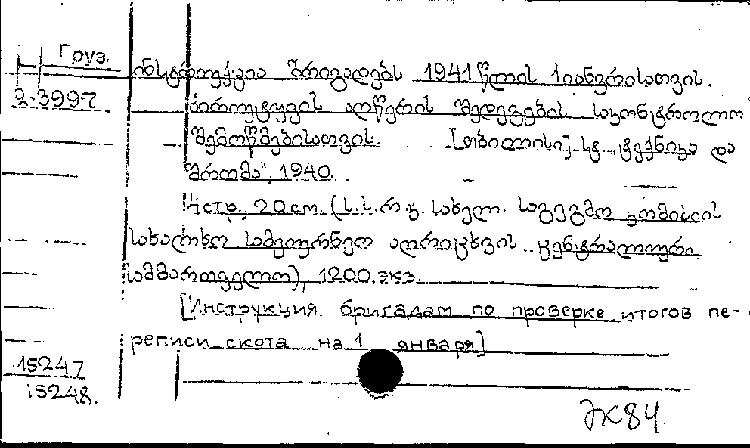 Груз.
ინსტრუქცია ბრიგადებს 1941 წლის 1 იანვრისათვის.
3-3997
პირუტყვის აღწერის შედეგების საკონტროლო
შემოწმებისათვის. [თბილისი], სტ. „ტექნიკა და
შრომა", 1940.
4 стр. 20 см. (ს.ს.რ.კ. სახელ. საგეგმო კომისის
სახალხო სამეურნეო აღრიცხვის ცენტრალური
სამმართველო), 1200 экз.
[Инструкция бригадам по проверке итогов пе-
реписи скота на 1 января]
15247
15248.
ЭК84